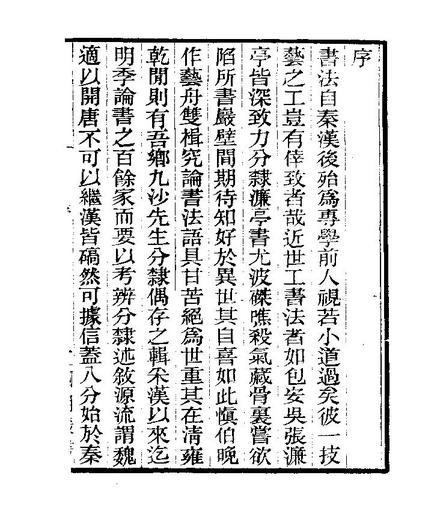 序
書法自秦漢後殆爲專學前人視若小道過矣彼一技
藝之工豈有倖致者哉近世工書法者如包安吳張濂
亭皆深致力分隸濂亭書尤波磔噍殺氣藏骨裏嘗欲
陷所書嚴壁間期待知好於異世其自喜如此愼伯晚
作藝舟雙楫究論書法語具甘苦絕爲世重其在淸雍
乾閒則有吾鄉九沙先生分隸偶存之輯采漢以來迄
明季論書之百餘家而要以考辨分隸述敘源流謂魏
適以開唐不可以繼漢皆碻然可據信蓋八分始於秦